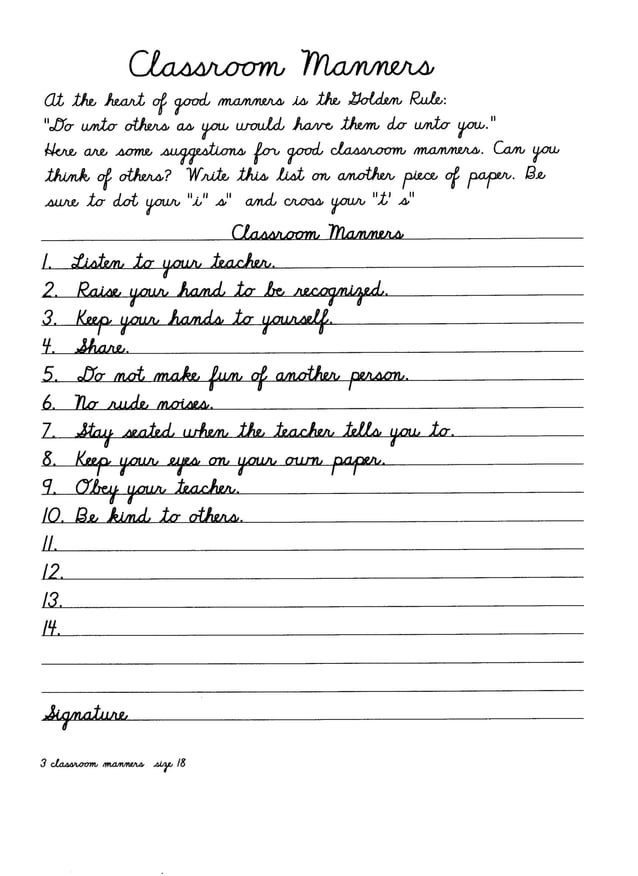 Classroom Manners
At the heart of good manners is the Golden Rule:
"Do unto others as you would have them do unto you."
Here are some suggestions for good classroom manners. Can you
think of others? Write this list on another piece of paper. Be
sure to dot your "i" s" and cross your "t' s"
Classroom Manners
1. Listen to your teacher.
2. Raise your hand to be recognized.
3. Keep your hands to yourself.
4. Share.
5. Do not make fun of another person.
6. No rude noises.
7. Stay seated when the teacher tells you to.
8. Keep your eyes on your own paper.
9. Obey your teacher.
10. Be kind to others.
11.
12.
13.
14.
Signature
3 classroom manners size 18